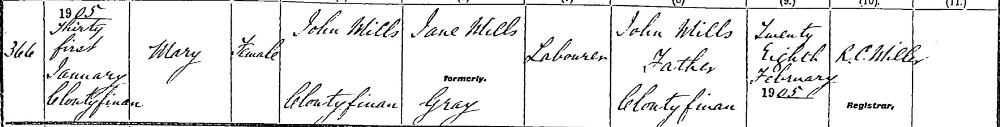 (9.) (10.) (11.)
366
1905
Thirty
first
January
Clontyfinan
Mary
Female
John Mills
Clontyfinan
Jane Mills
formerly.
Gray
Labourer
John Mills
Father
Clontyfinan
Twenty
Eighth
February
1905
R.C. Miller
Registrar.